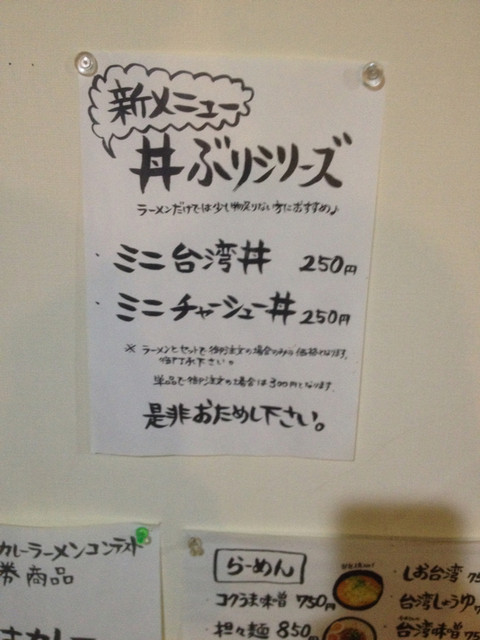 新メニュー
丼ぶりシリーズ
ラーメンだけでは少し物足りない方におすすめ♪
・ミニ台湾丼 250円
・ミニチャーシュー丼 250円
※ラーメンとセットで御注文の場合のみの価格となります。
御了承下さい。
単品で御注文の場合は300円となります。
是非おためし下さい。
カレーラーメンコンテスト
券商品
らーめん
コクうま味噌 750円
担々麺 850
・しお台湾
・台湾しょうゆ
・台湾味噌